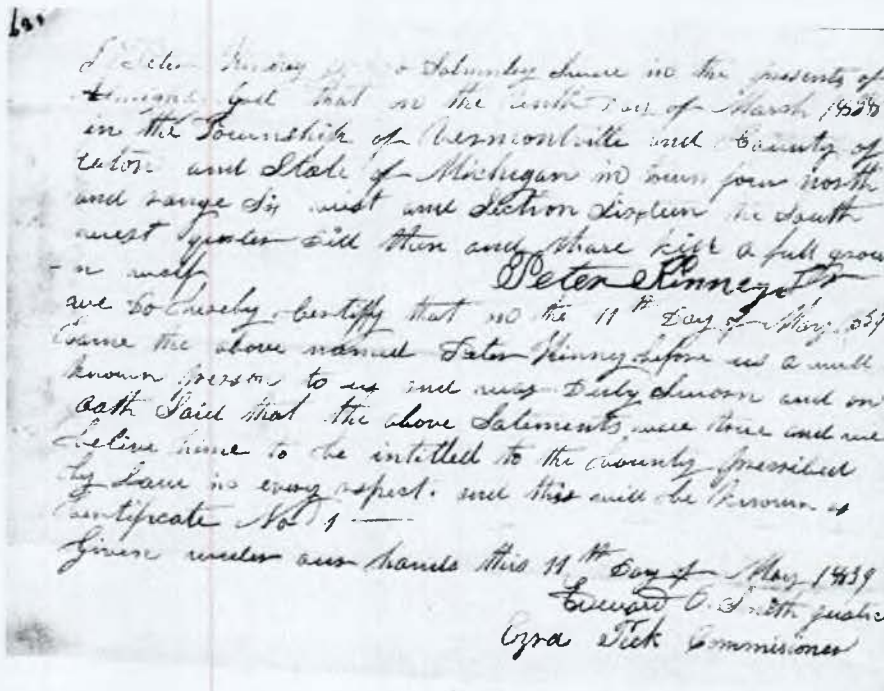 I Peter Kinney Do Solomnly Sware in the presents of
God that on the tenth Day of March 1838
in the Township of Vermontville and County of
Eaton and State of Michigan in town four north
and range Six west and Section Sixteen the South
west quarter did then and thare kill a full grow
n wolf
Peter Kinney Jr
we Do hereby Certify that on the 11th Day of May 1839
Came the above named Peter Kinny before us a well
known person to us and was Duly Sworn and on
oath Said that the above Satements ware true and we
belive hime to be intitled to the bounty prescribed
by Law in every respect. and this will be known as
Certificate No 1
Given under our hands this 11th Day of May 1839
Edward O. Smith justice
Ezra Commisioner